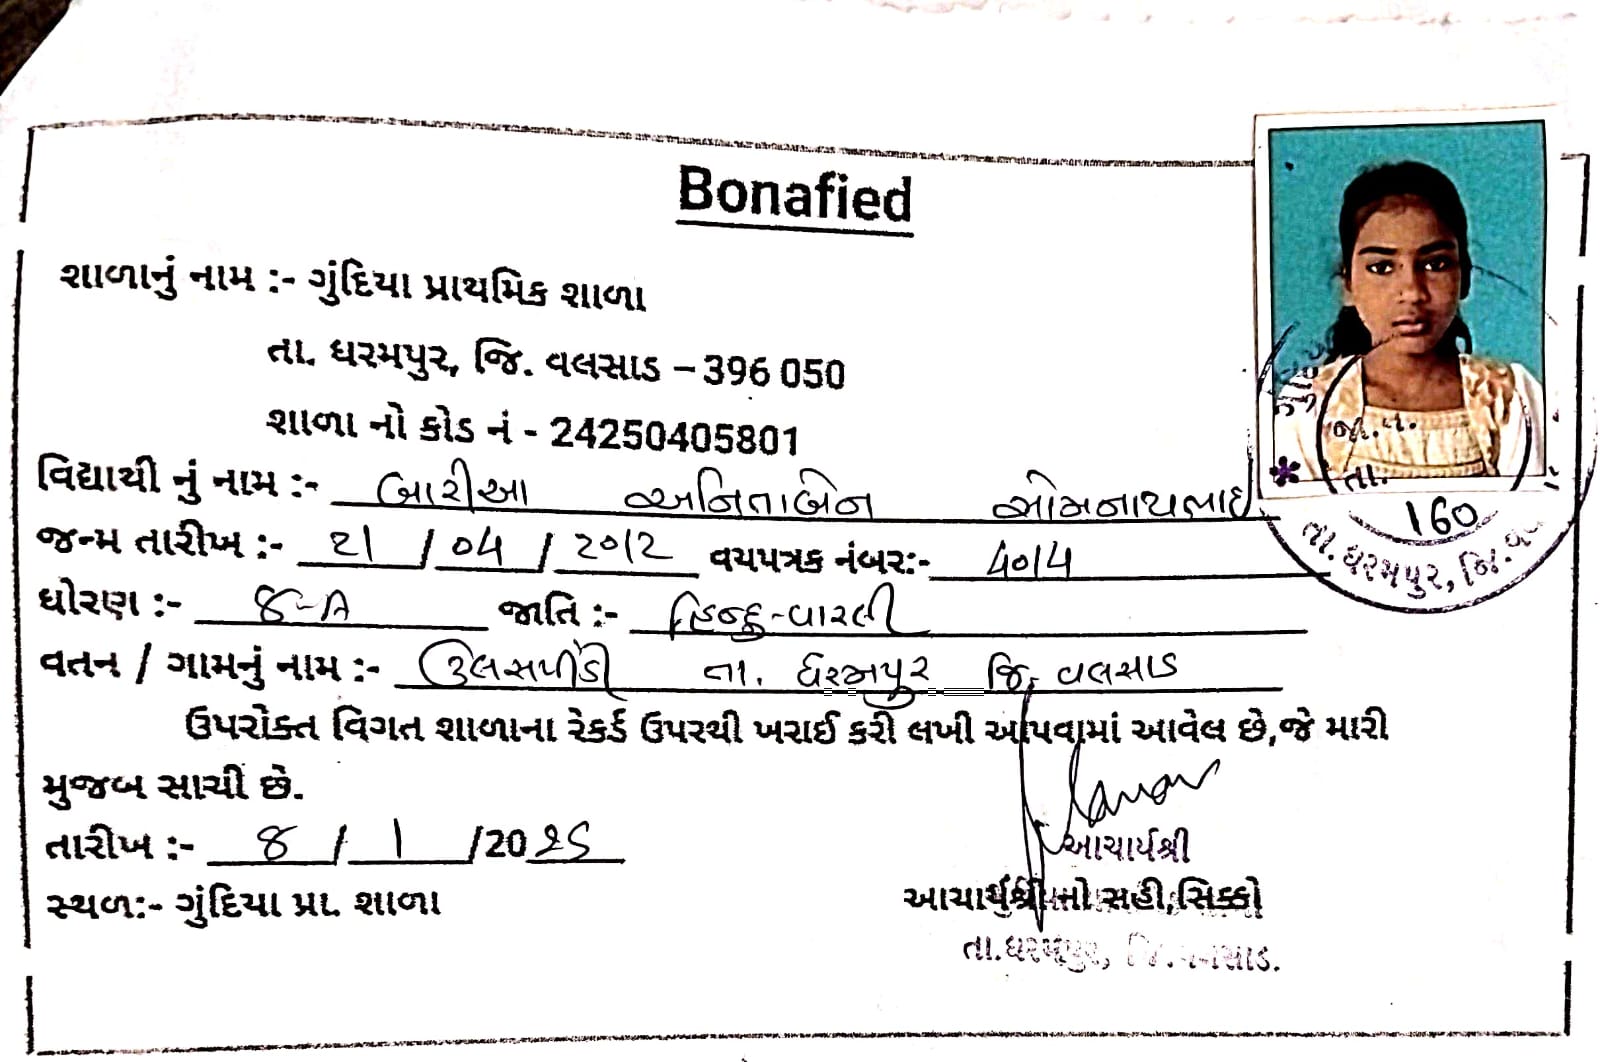 Bonafied
શાળાનું નામ :- ગુંદિયા પ્રાથમિક શાળા
તા. ધરમપુર, જિ. વલસાડ – 396 050
શાળા નો કોડ નં - 24250405801
વિદ્યાથી નું નામ :- બારીઆ અનિતાબેન સોમનાથભાઈ
જન્મ તારીખ :- ૨૧ / ૦૪ / ૨૦૧૨ વયપત્રક નંબર:- ૪૦૧૪
ધોરણ :- ૪-A જાતિ :- હિન્દુ-વારલી
વતન / ગામનું નામ :- ઉલસપીંડી તા. ધરમપુર જિ. વલસાડ
ઉપરોક્ત વિગત શાળાના રેકર્ડ ઉપરથી ખરાઈ કરી લખી આપવામાં આવેલ છે,જે મારી
મુજબ સાચી છે.
તારીખ :- ૪ / ૧ /20૨૬
સ્થળ:- ગુંદિયા પ્રા. શાળા
આચાર્યશ્રી
આચાર્યશ્રીનો સહી,સિક્કો
તા.ધરમપુર, જિ.વલસાડ.
જા.ન.
તા.
160
તા.ધરમપુર, જિ.વ